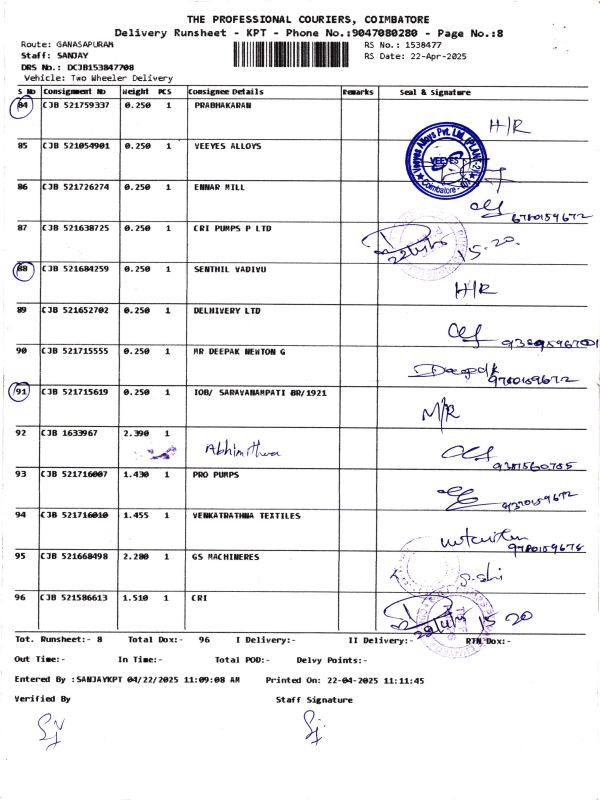 THE PROFESSIONAL COURIERS, COIMBATORE
Delivery Runsheet - KPT - Phone No.:9047080280 - Page No.:8
Route: GANASAPURAM RS No.: 1538477
Staff: SANJAY RS Date: 22-Apr-2025
DRS No.: DCJB153847708
Vehicle: Two Wheeler Delivery
S No Consignment No Weight PCS Consignee Details Remarks Seal & Signature
84 CJB 521759337 0.250 1 PRABHAKARAN H/R
85 CJB 521054901 0.250 1 VEEYES ALLOYS
Veeyes Alloys Pvt. Ltd. VEEYES Coimbatore
86 CJB 521726274 0.250 1 ENNAR MILL
87 CJB 521638725 0.250 1 CRI PUMPS P LTD 15.20.
88 CJB 521684259 0.250 1 SENTHIL VADIVU H/R
89 CJB 521652702 0.250 1 DELHIVERY LTD
90 CJB 521715555 0.250 1 MR DEEPAK NEWTON G Deepak 9780159672
91 CJB 521715619 0.250 1 IOB/ SARAVANAMPATI BR/1921 M/R
92 CJB 1633967 2.390 1
93 CJB 521716007 1.430 1 PRO PUMPS
94 CJB 521716010 1.455 1 VENKATRATHNA TEXTILES
95 CJB 521668498 2.280 1 GS MACHINERES
96 CJB 521586613 1.510 1 CRI 15 20
Tot. Runsheet:- 8 Total Dox:- 96 I Delivery:- II Delivery:- RTN Dox:-
Out Time:- In Time:- Total POD:- Delvy Points:-
Entered By :SANJAYKPT 04/22/2025 11:09:08 AM Printed On: 22-04-2025 11:11:45
Verified By Staff Signature